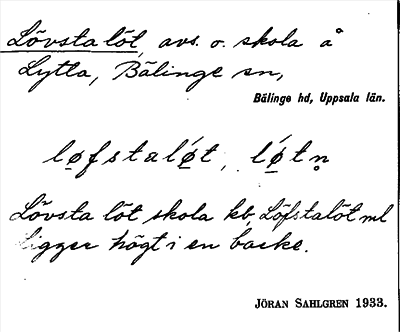 Lövsta löt, avs. o. skola å
Lytta, Bälinge sn,
Bälinge hd, Uppsala län.
lø̱fstalǿ̱t, lǿ̱tn̥
Lövsta löt skola kb, Löfstalöt ml
ligger högt i en backe.
JÖRAN SAHLGREN 1933.